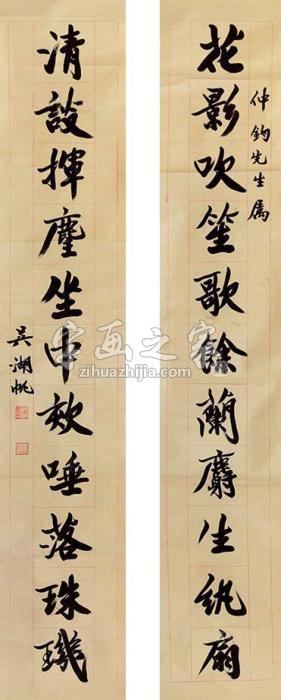 仲鈞先生属
花影吹笙歌餘蘭麝生紈扇
清談揮麈坐中欬唾落珠璣
吴湖帆
字画之家
zihuazhijia.com